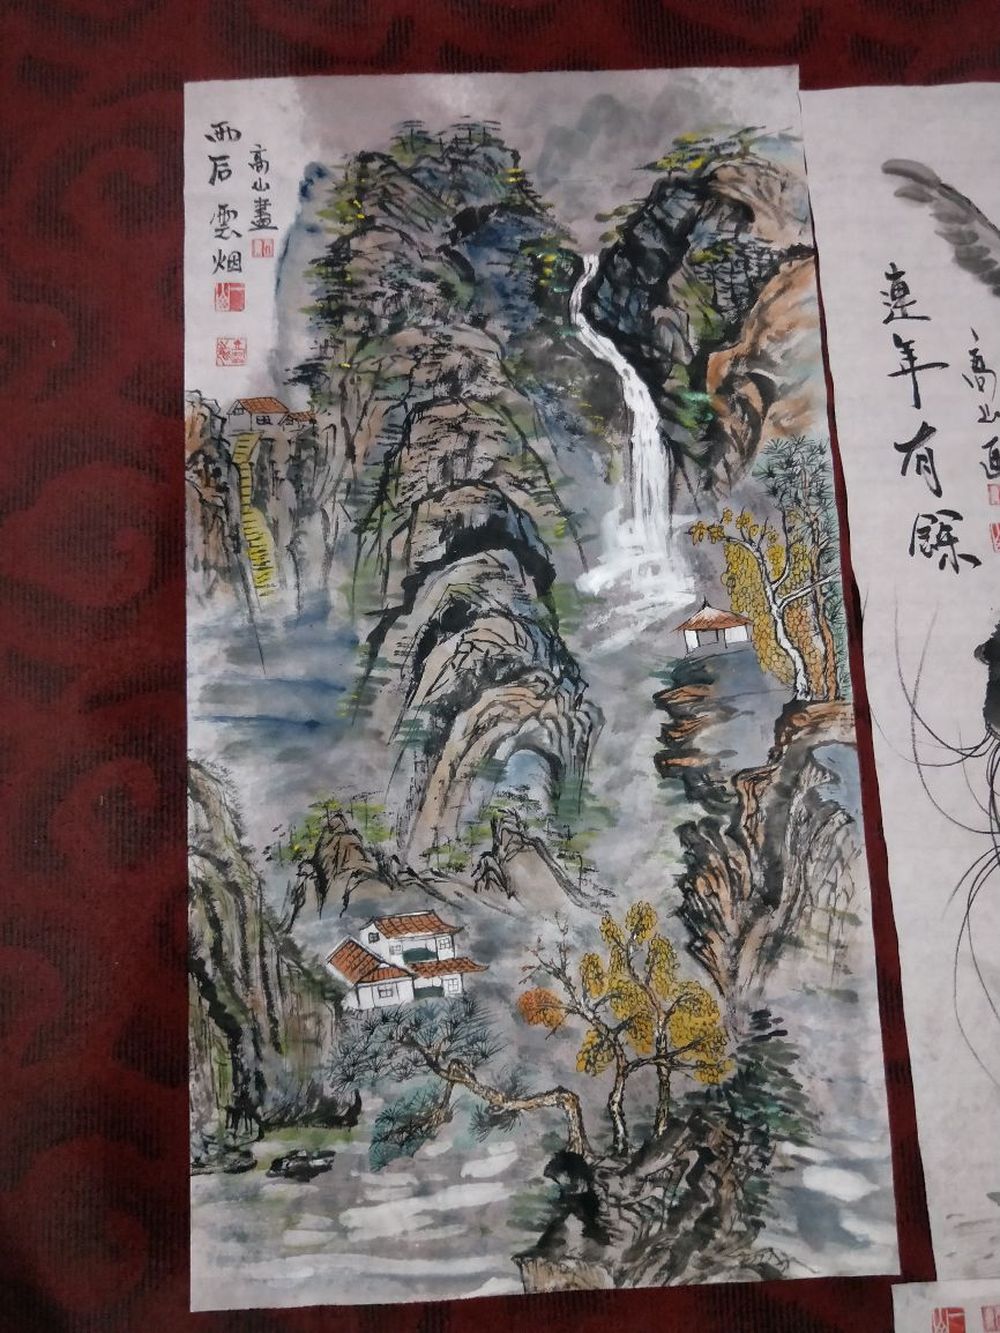 雨后雲烟
高山畫
連年有餘
高山画